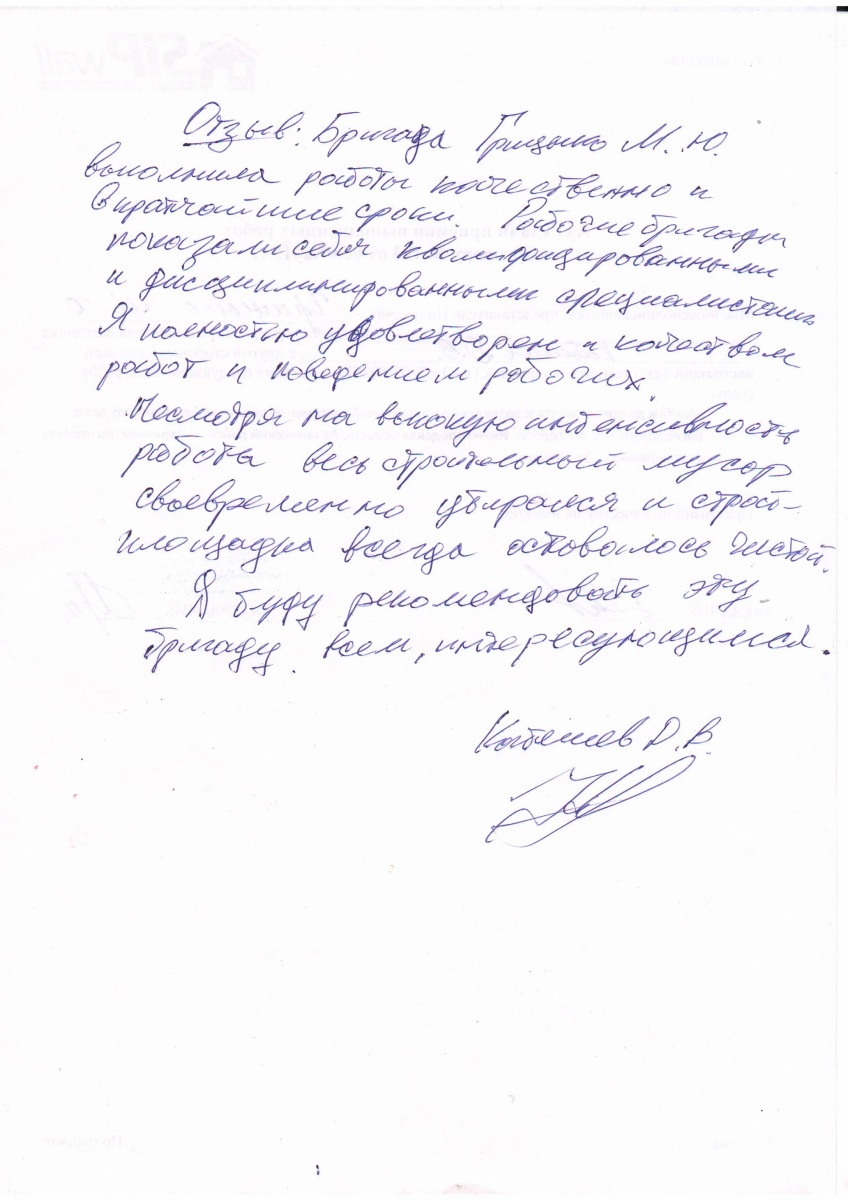 Отзыв: Бригада Гриценко М. Ю.
выполнила работы качественно и
в кратчайшие сроки. Рабочие бригады
показали себя квалифицированными
и дисциплинированными специалистами
Я полностью удовлетворен и качеством
работ и поведением рабочих.
Несмотря на высокую интенсивность
работа весь строительный мусор
своевременно убирался и строй-
площадка всегда оставалось чистой.
Я буду рекомендовать эту
бригаду всем, интересующимся.
Д. В.